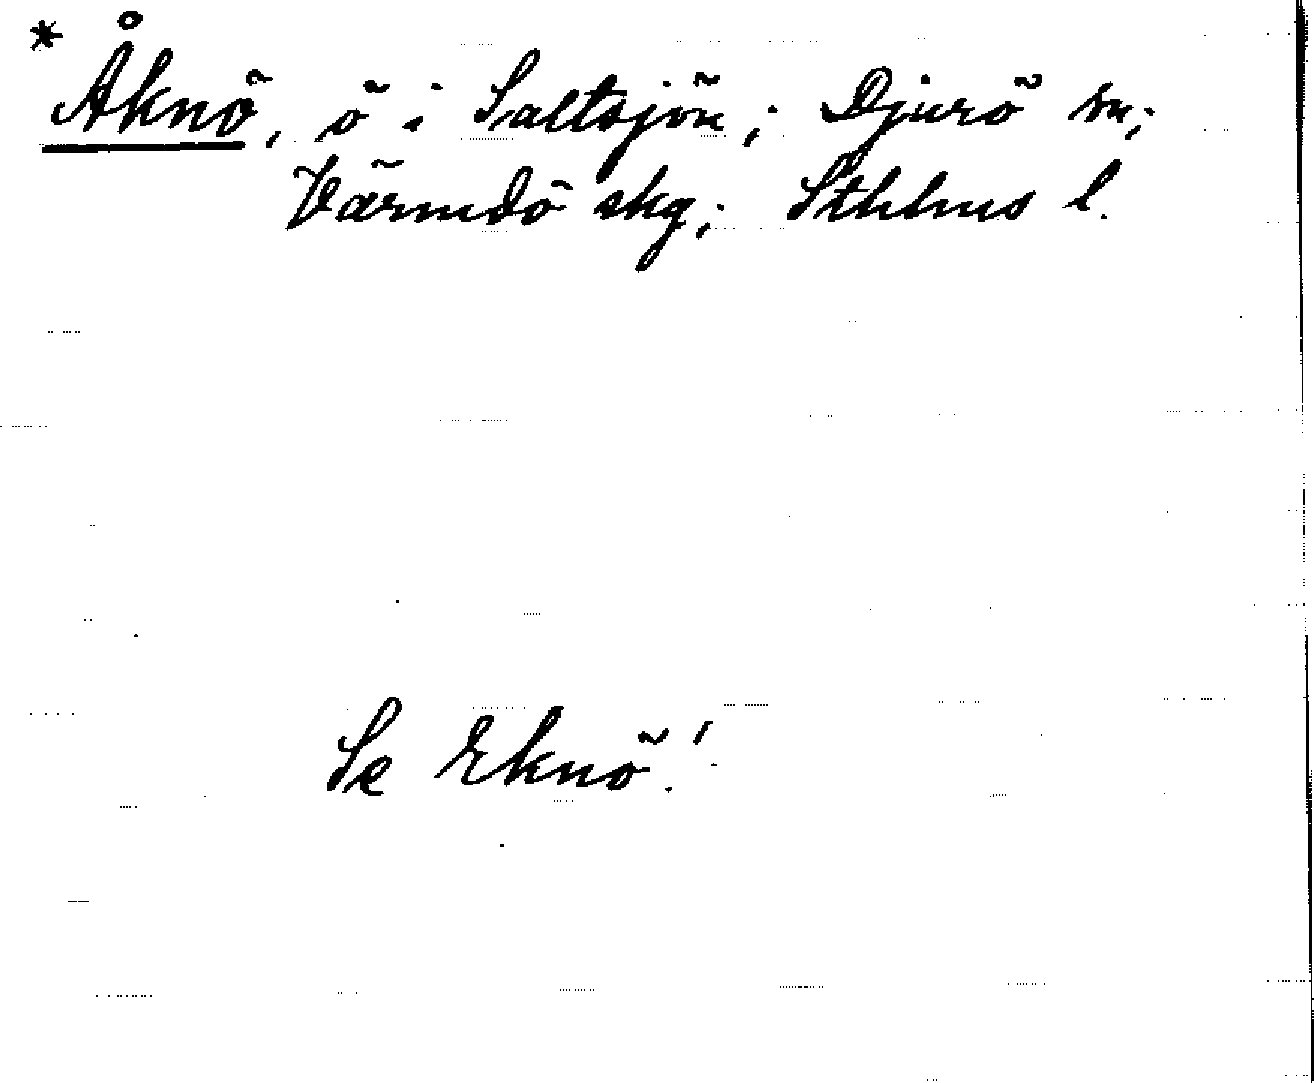 * Åknö, ö i Saltsjön; Djurö sn;
Värmdö skg; Sthlms l.
Se Eknö!